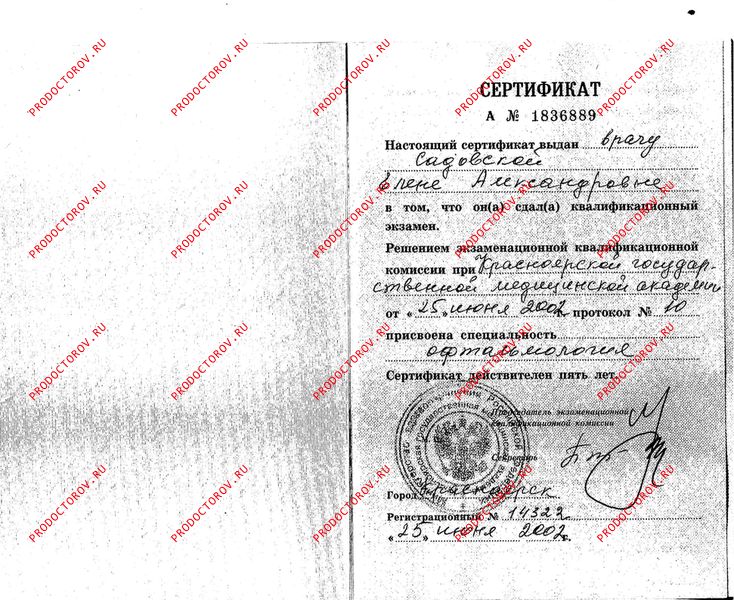 СЕРТИФИКАТ
А № 1836889
Настоящий сертификат выдан врачу
Садовской
Елене Александровне
в том, что он(а) сдал(а) квалификационный
экзамен.
Решением экзаменационной квалификационной
комиссии при Красноярской государ-
ственной медицинской академии
от «25» июня 2002 г. протокол № 10
присвоена специальность
офтальмология
Сертификат действителен пять лет.
Председатель экзаменационной
квалификационной комиссии
Секретарь
Город Красноярск
Регистрационный № 14322
«25» июня 2002 г.
PRODOCTOROV.RU